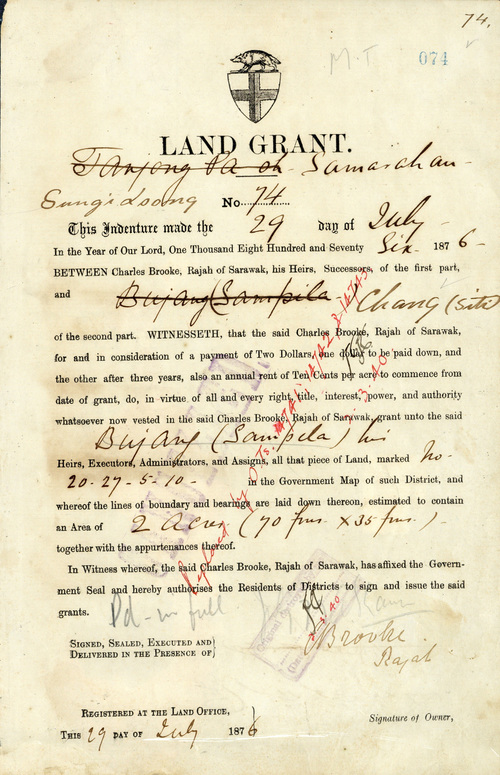 74.
M.T
074
LAND GRANT.
Tanjong Samarahan
Sungi Loong No. 74
This Indenture made the 29 day of July
In the Year of Our Lord, One Thousand Eight Hundred and Seventy Six 1876
BETWEEN Charles Brooke, Rajah of Sarawak, his Heirs, Successors, of the first part,
and Bujang (Sampila Chang (
of the second part. WITNESSETH, that the said Charles Brooke, Rajah of Sarawak,
for and in consideration of a payment of Two Dollars, one dollar to be paid down, and
the other after three years, also an annual rent of Ten Cents per acre to commence from
date of grant, do, in virtue of all and every right, title, interest, power, and authority
whatsoever now vested in the said Charles Brooke, Rajah of Sarawak, grant unto the said
Bujang (Sampila) his
Heirs, Executors, Administrators, and Assigns, all that piece of Land, marked no-
20-27-5-10- in the Government Map of such District, and
whereof the lines of boundary and bearings are laid down thereon, estimated to contain
an Area of 2 Acres (70 fms. x 35 fms.)-
together with the appurtenances thereof.
In Witness whereof, the said Charles Brooke, Rajah of Sarawak, has affixed the Govern-
ment Seal and hereby authorises the Residents of Districts to sign and issue the said
grants.
Pd- in full
Replaced by O.Ts.
2.3.40
CBrooke
Rajah
SIGNED, SEALED, EXECUTED AND
DELIVERED IN THE PRESENCE OF
REGISTERED AT THE LAND OFFICE,
THIS 29 DAY OF July 1876
Signature of Owner,